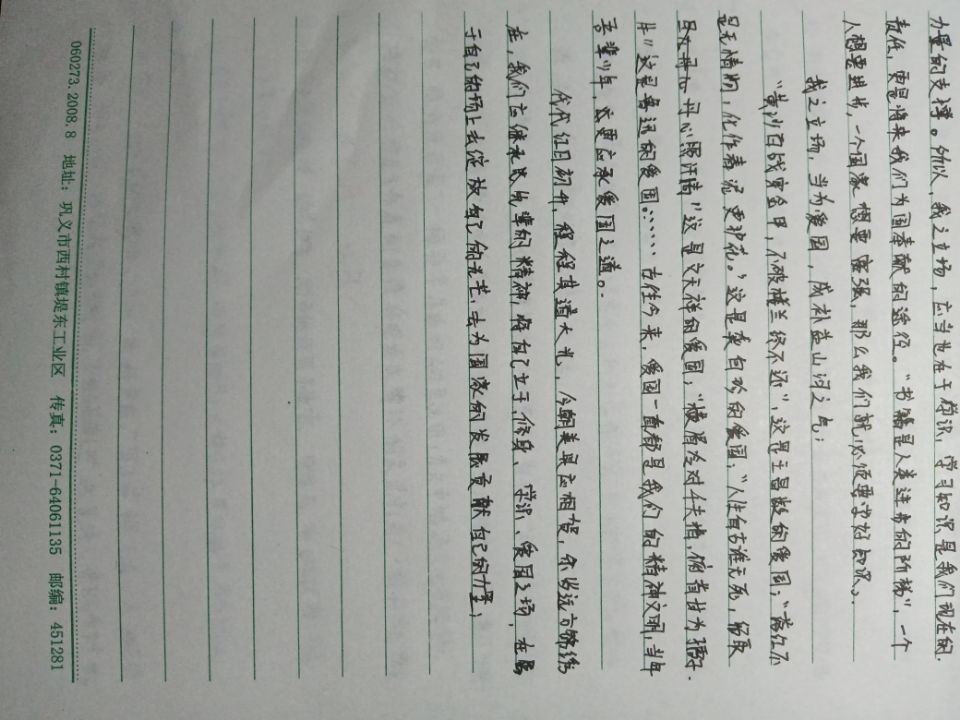 力量的支撑。所以，我之立场，应当也在于学识，学习知识是我们现在的
责任，更是将来我们为国奉献的途径。“书籍是人类进步的阶梯”，一个
人想要进步，一个国家想要富强，那么我们就必须要学好知识。
我之立场，当为爱国，成补益山河之气；
“黄沙百战穿金甲，不破楼兰终不还”，这是王昌龄的爱国；“落红不
是无情物，化作春泥更护花。”这是龚自珍的爱国；“人生自古谁无死，留取
丹心照汗青”这是文天祥的爱国；“横眉冷对千夫指，俯首甘为孺子
牛”这是鲁迅的爱国……古往今来，爱国一直都是我们的精神文明，当年
吾辈少年，亦更应承爱国之道。
代代红日初升，程程其道大光，今朝美景应相贺，余当远方锦绣
在，我们应继承民先辈的精神，将自己立于修身、学识、爱国之场，在属
于自己的场上去绽放自己的光芒，去为国家的发展贡献自己的力量；
060273.2008.8 地址：巩义市西村镇堤东工业区 传真：0371-64061135 邮编：451281